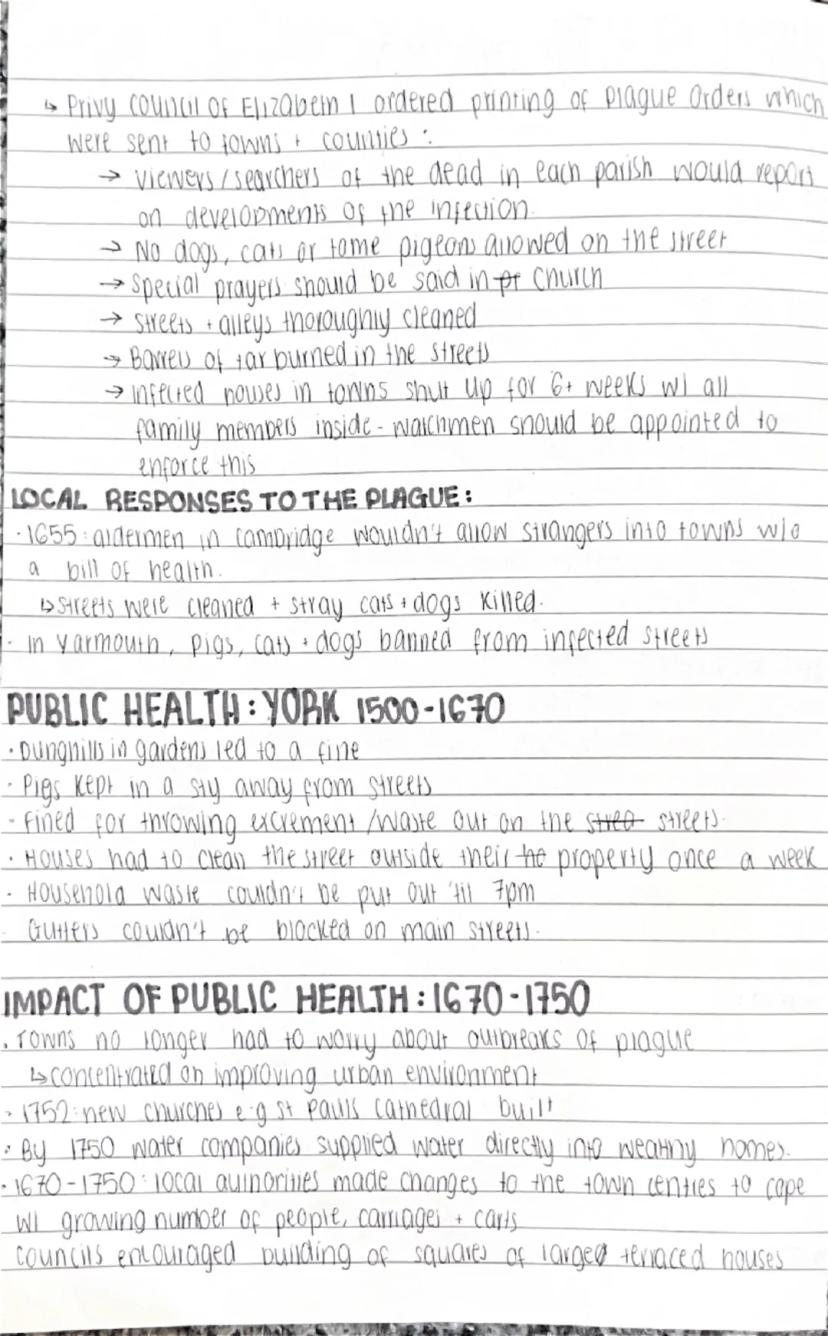 ↳ Privy Council of Elizabeth I ordered printing of Plague Orders which
were sent to towns + counties :
→ viewers/searchers of the dead in each parish would report
on developments of the infection.
→ No dogs, cats or tame pigeons allowed on the street
→ Special prayers should be said in pr church
→ Streets + alleys thoroughly cleaned
→ Barrels of tar burned in the streets
→ Infected houses in towns shut up for 6+ weeks w/ all
family members inside - watchmen should be appointed to
enforce this
LOCAL RESPONSES TO THE PLAGUE:
· 1655: aldermen in Cambridge wouldn't allow strangers into towns w/o
a bill of health.
↳ Streets were cleaned + stray cats + dogs killed.
· In Yarmouth, pigs, cats + dogs banned from infected streets
PUBLIC HEALTH: YORK 1500-1670
· Dunghills in gardens led to a fine
· Pigs kept in a sty away from streets
· Fined for throwing excrement/waste out on the stree streets.
· Houses had to clean the street outside their he property once a week
· Household waste couldn't be put out 'til 7pm
· Gutters couldn't be blocked on main streets.
IMPACT OF PUBLIC HEALTH: 1670-1750
· Towns no longer had to worry about outbreaks of plague
↳ concentrated on improving urban environment
· 1752: new churches e.g St Pauls Cathedral built
· By 1750 water companies supplied water directly into wealthy homes.
· 1670-1750: local authorities made changes to the town centres to cope
w/ growing number of people, carriages + carts
councils encouraged building of squares of large terraced houses